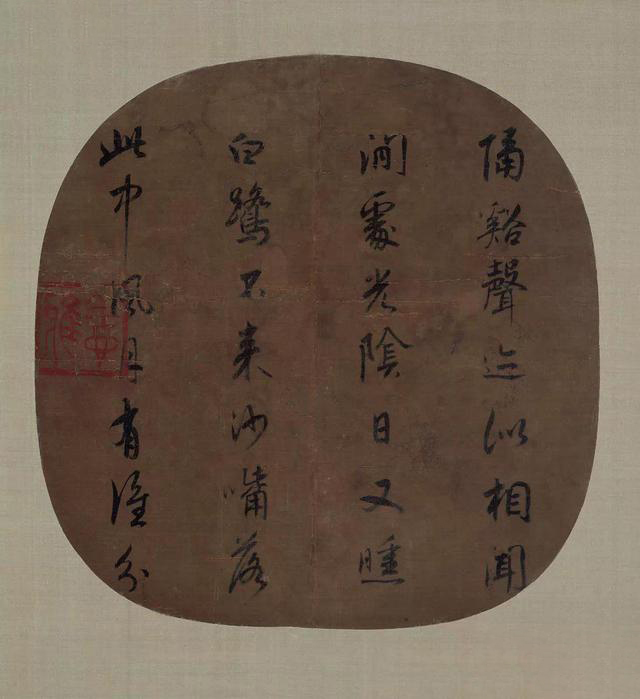 隔谿聲迹似相聞
閒處光陰日又曛
白鷺不來沙嘴落
此中風月有誰分